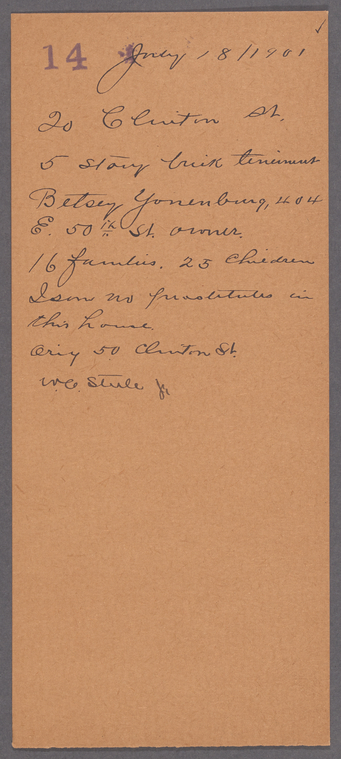 14 * July 18/1901
20 Clinton St.
5 story brick tenement
Betsey Yonenburg, 404
E. 50th St. owner.
16 families. 25 Children
I saw no prostitutes in
this house.
Orig 50 Clinton St.
W.C. Steele Jr